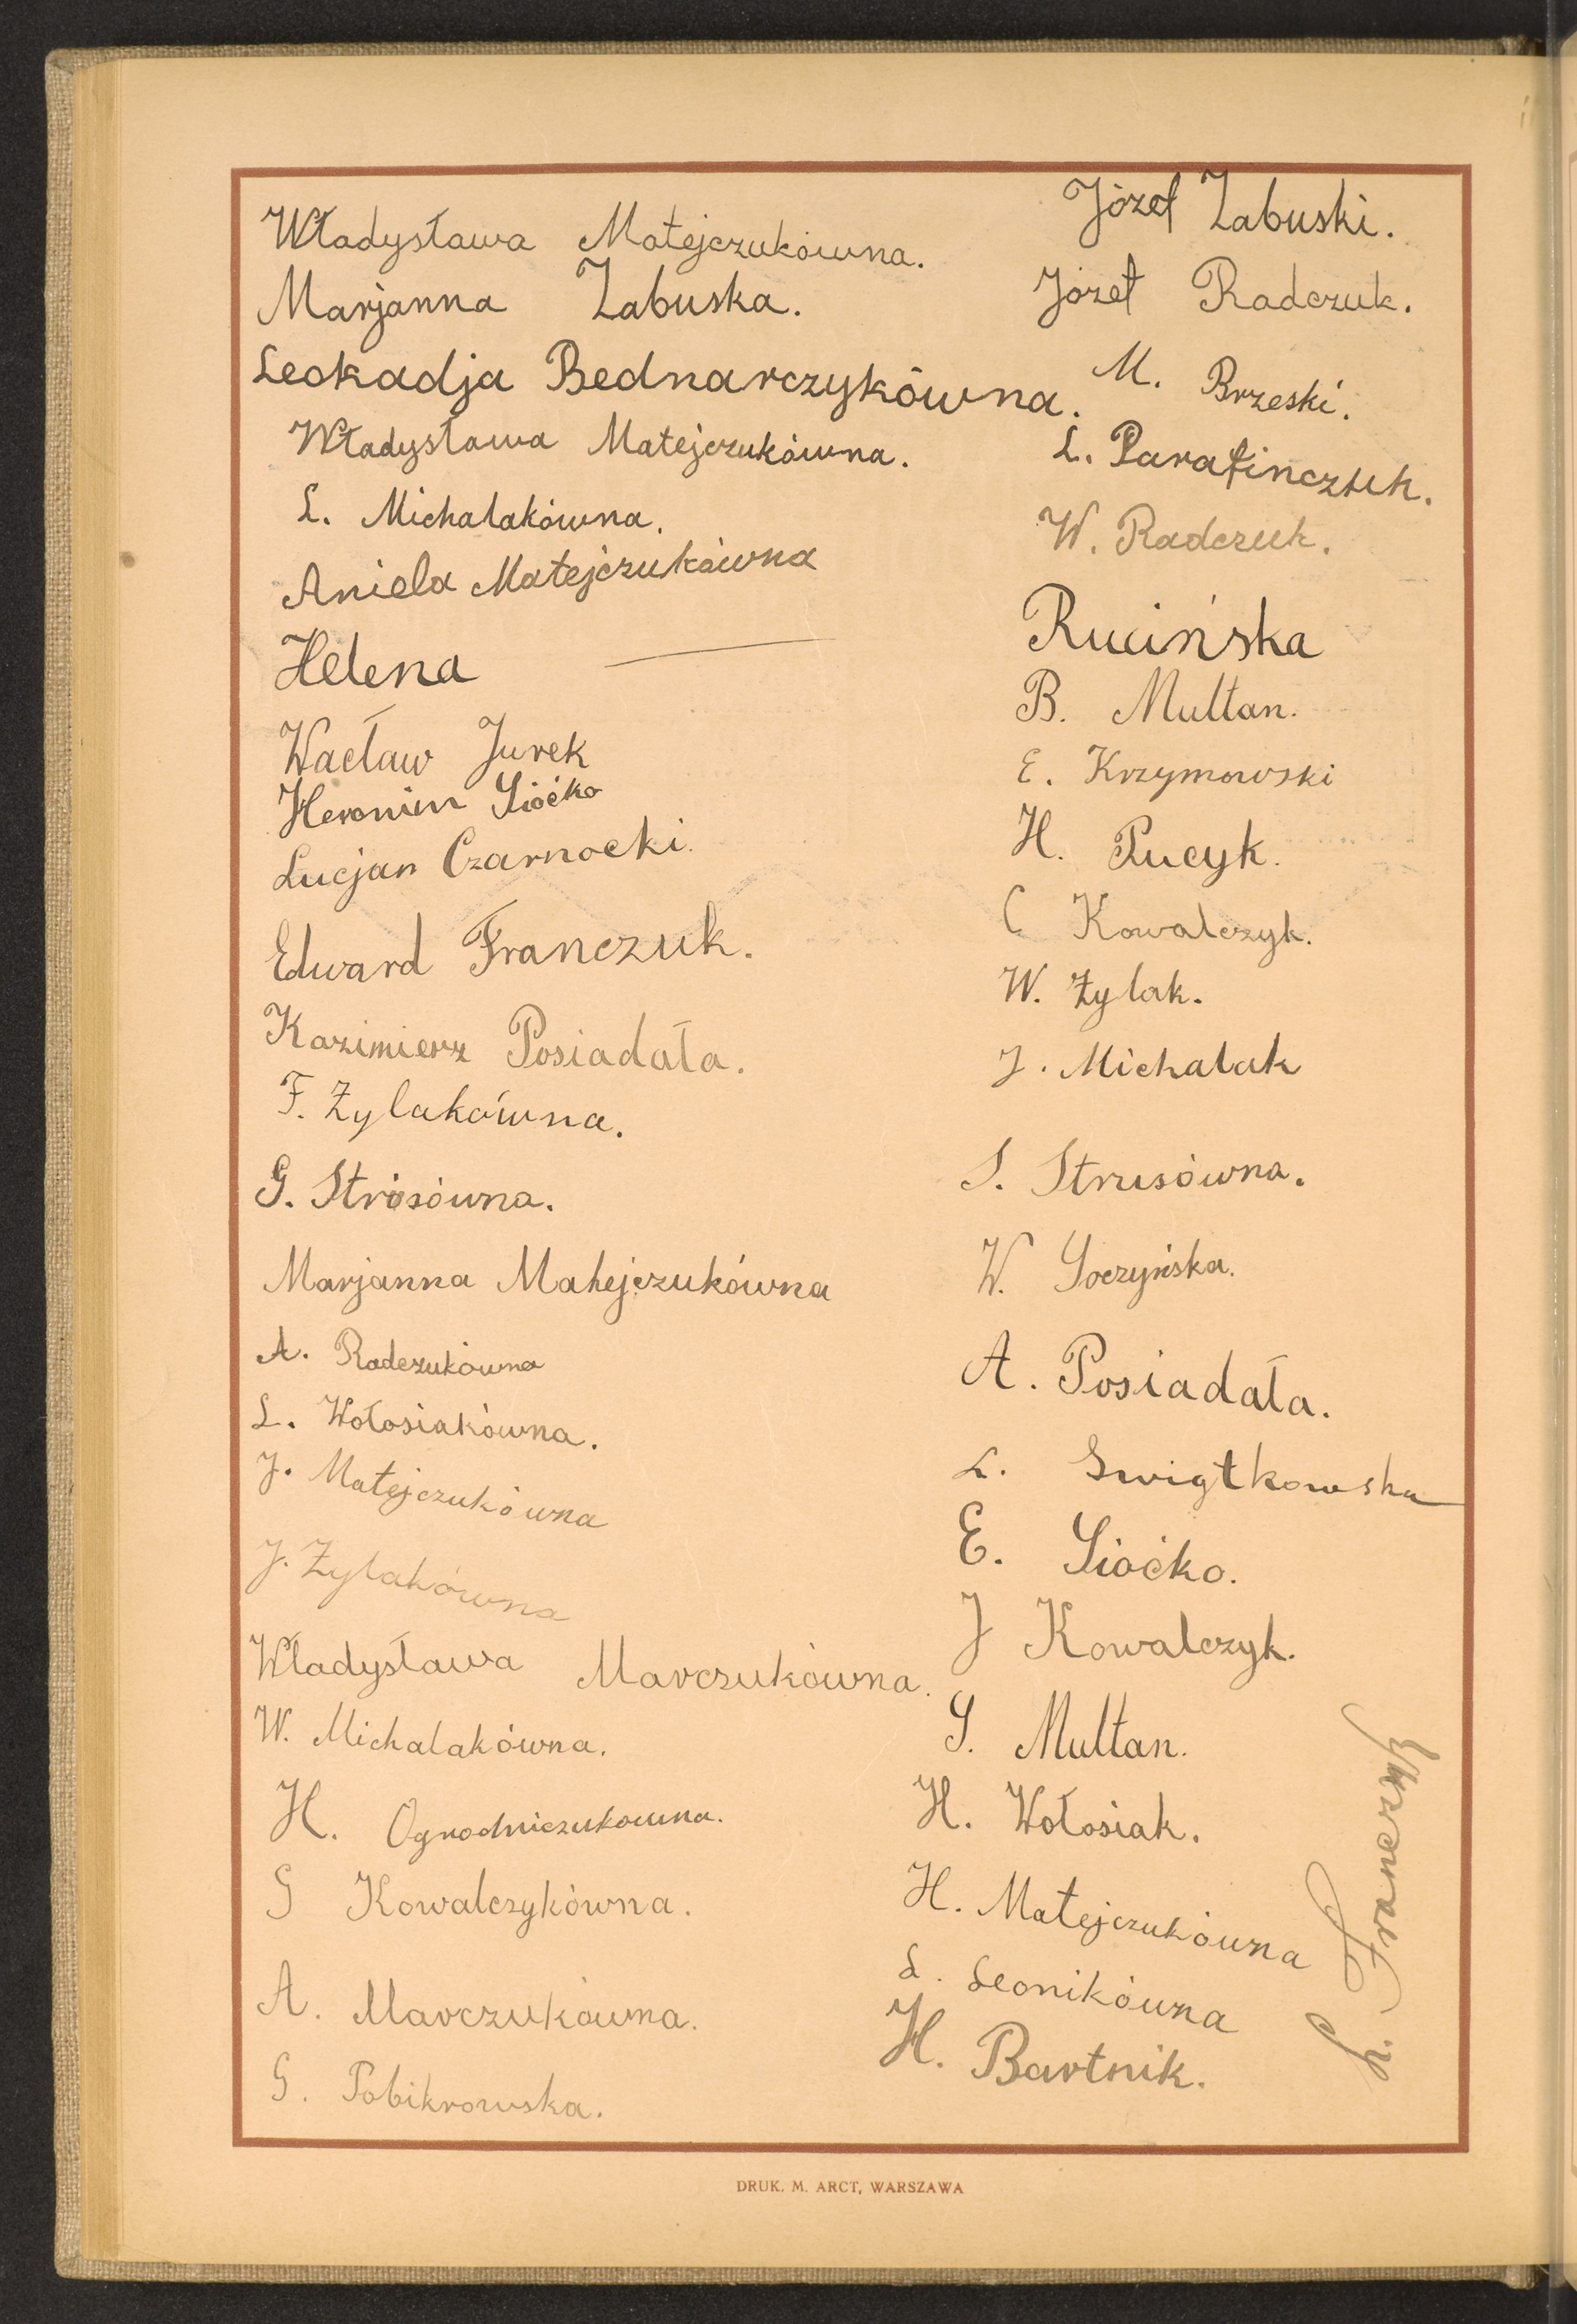 Władysława Matejczukówna.
Marjanna Zabuska.
Leokadja Bednarczykówna.
Władysława Matejczukówna.
L. Michalakówna.
Aniela Matejczukówna
Helena —
Wacław Jurek
Heronim Sioćko
Lucjan Czarnocki.
Edward Franczuk.
Kazimierz Posiadała.
F. Żylakówna.
G. Strósówna.
Marjanna Mahejczukówna
A. Radczukówna
L. Wołosiakówna.
J. Matejczukówna
J. Żylakówna
Władysława Marczukówna.
W. Michalakówna.
H. Ogrodniczukowna.
G Kowalczykówna.
A. Marczukówna.
G. Pobikrowska.
Józef Zabuski.
Józef Radczuk.
M. Brzeski.
L. Parafinczuk.
W. Radczuk.
Rucińska
B. Multan.
E. Krzymowski
H. Pucyk.
C Kowalczyk.
W. Żylak.
J. Michalak
S. Strusówna.
W. Soczyńska.
A. Posiadała.
L. Swiątkowska
E. Sioćko.
J Kowalczyk.
S. Multan.
H. Wołosiak.
H. Matejczukówna
L. Leonikówna
H. Bartnik.
L. Franczuk
DRUK. M. ARCT, WARSZAWA